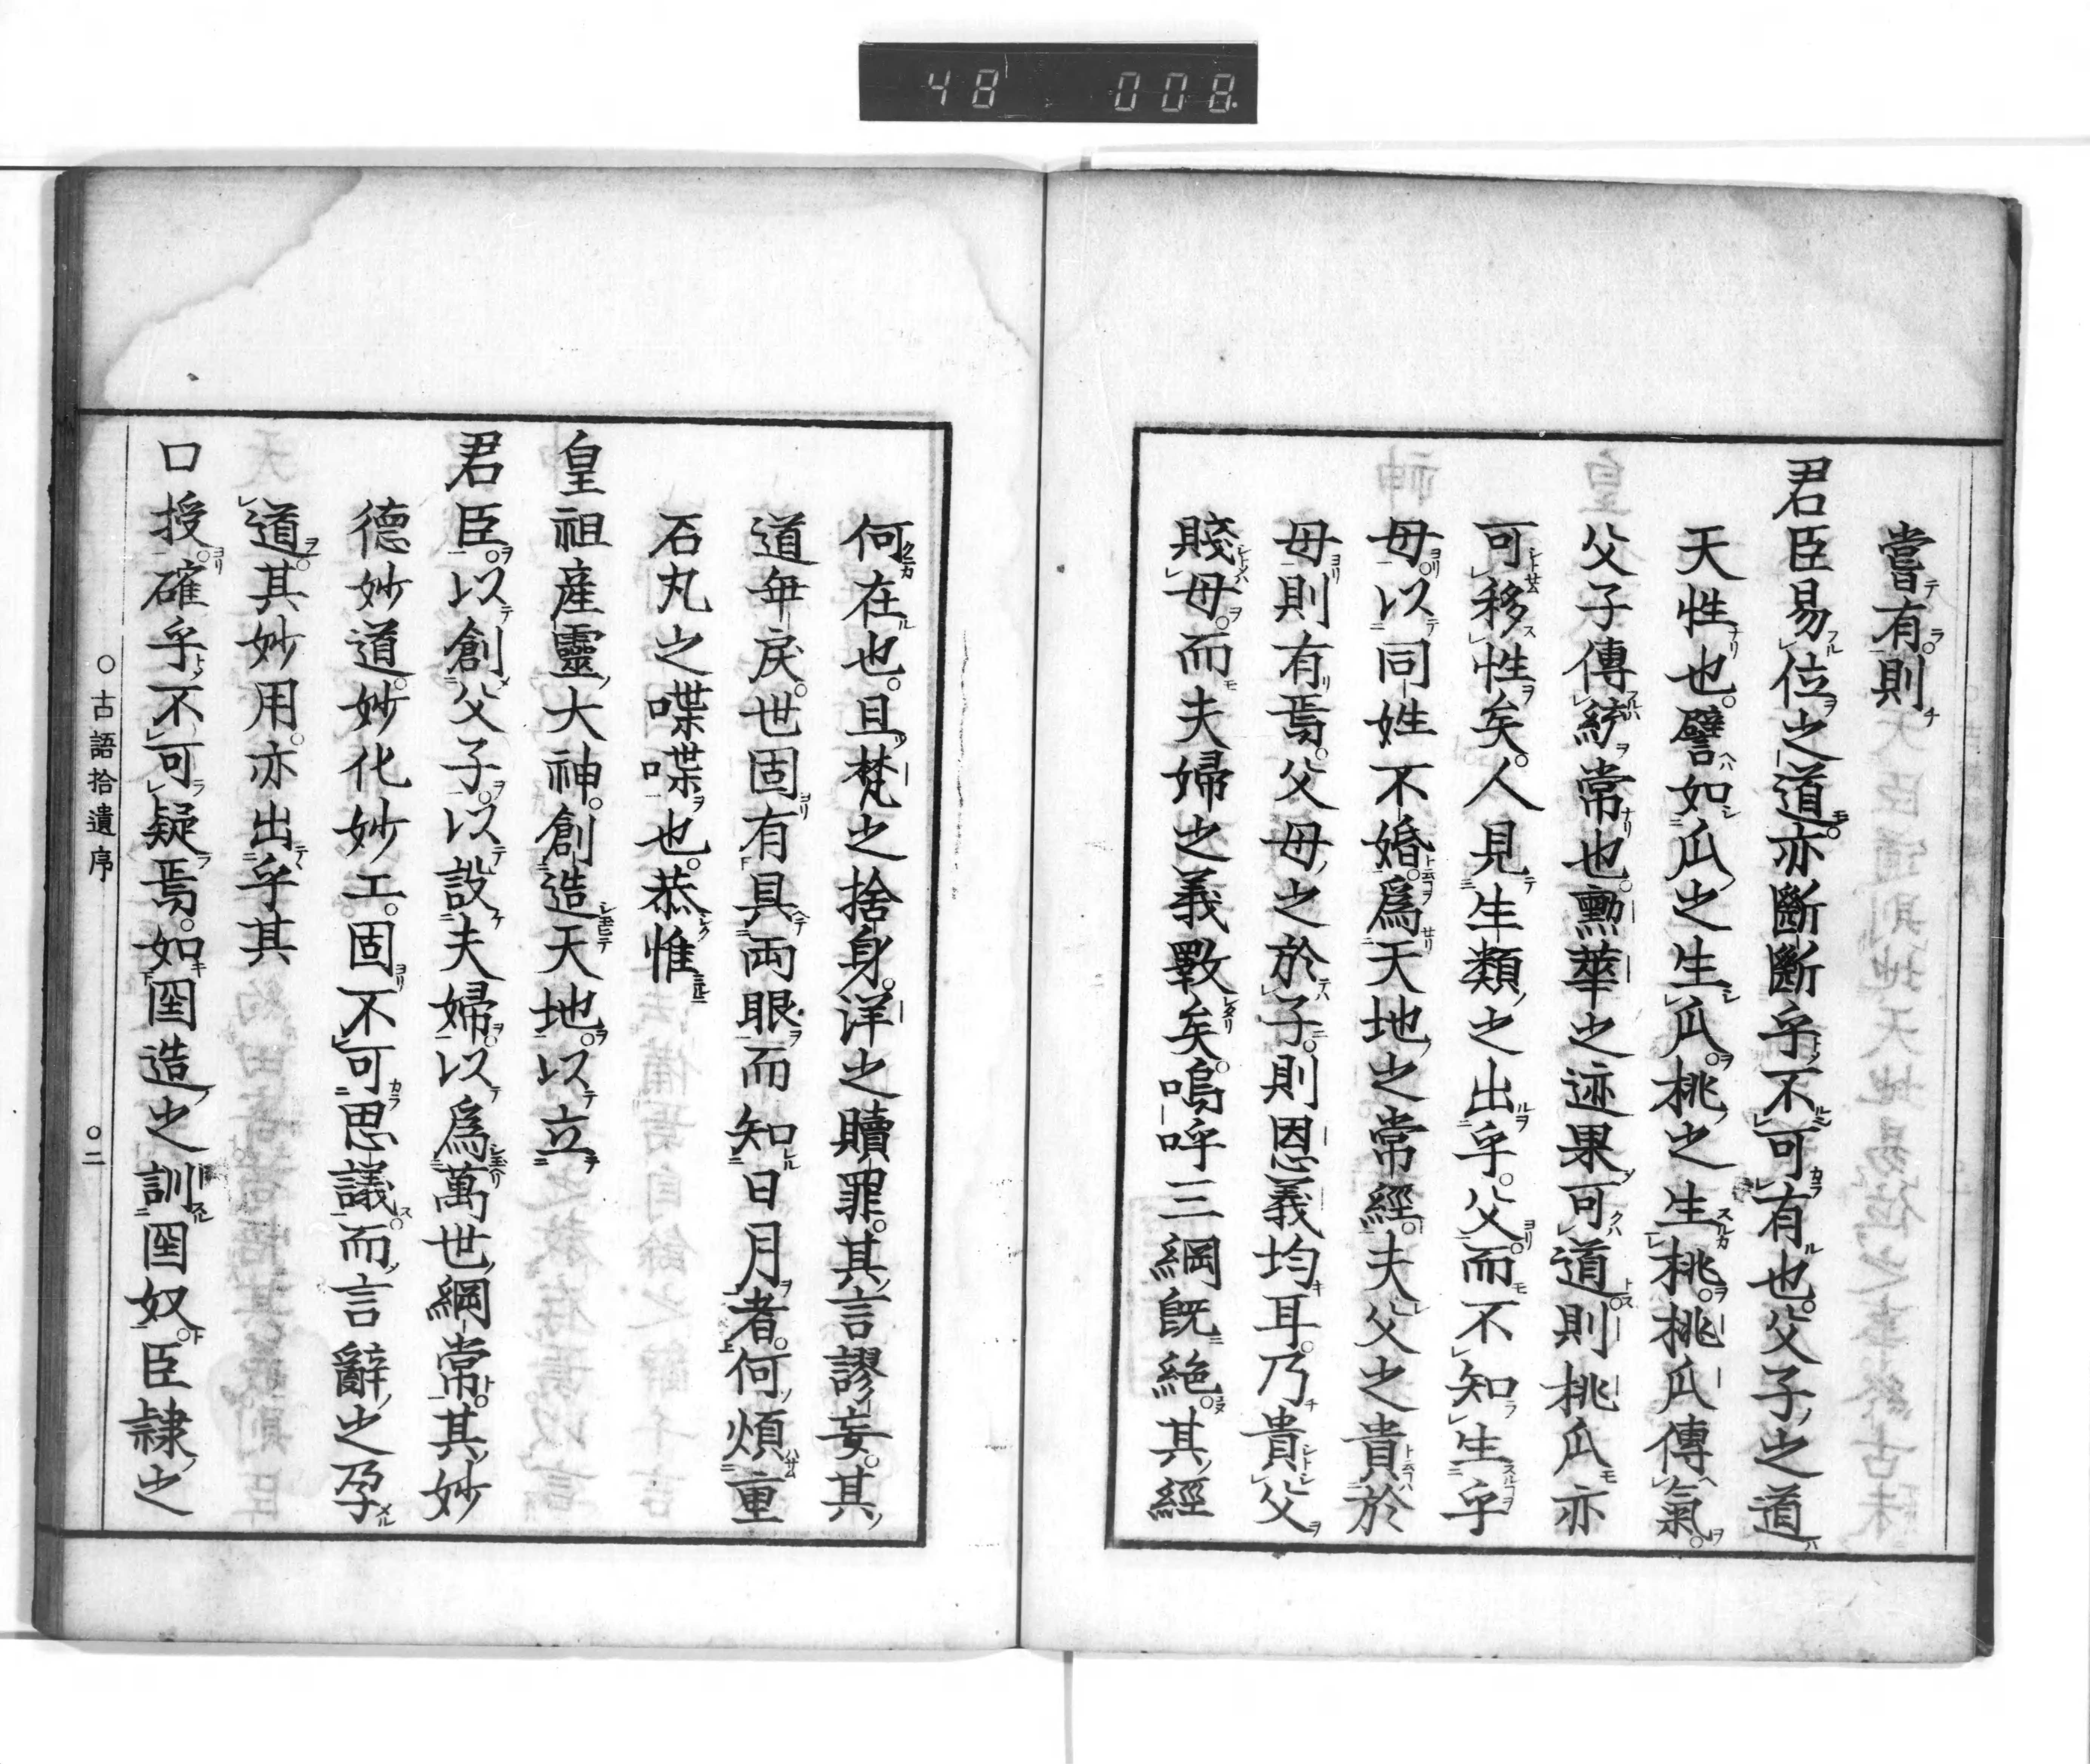 48 008
嘗有則
君臣易位之道亦斷斷乎不可有也父子之道
天性也譬如瓜之生瓜桃之生桃桃瓜傳氣
父子傳統常也勲華之迹果可道則桃瓜亦
可移性矣人見生類之出乎父而不知生乎
母以同姓不婚爲天地之常經夫父之貴於
母則有焉父母之於子則恩義均耳乃貴父
賤母而夫婦之義斁矣嗚呼三綱既絶其經
何在也且梵之捨身洋之贖罪其言謬妄其
道毎戻世固有具兩眼而知日月者何煩重
石丸之喋喋也恭惟
皇祖産靈大神創造天地以立
君臣以創父子以設夫婦以爲萬世綱常其妙
德妙道妙化妙工固不可思議而言辭之孕
道其妙用亦出乎其
口授確乎不可疑焉如囶造之訓囶奴臣隷之
○古語拾遺序 ○二